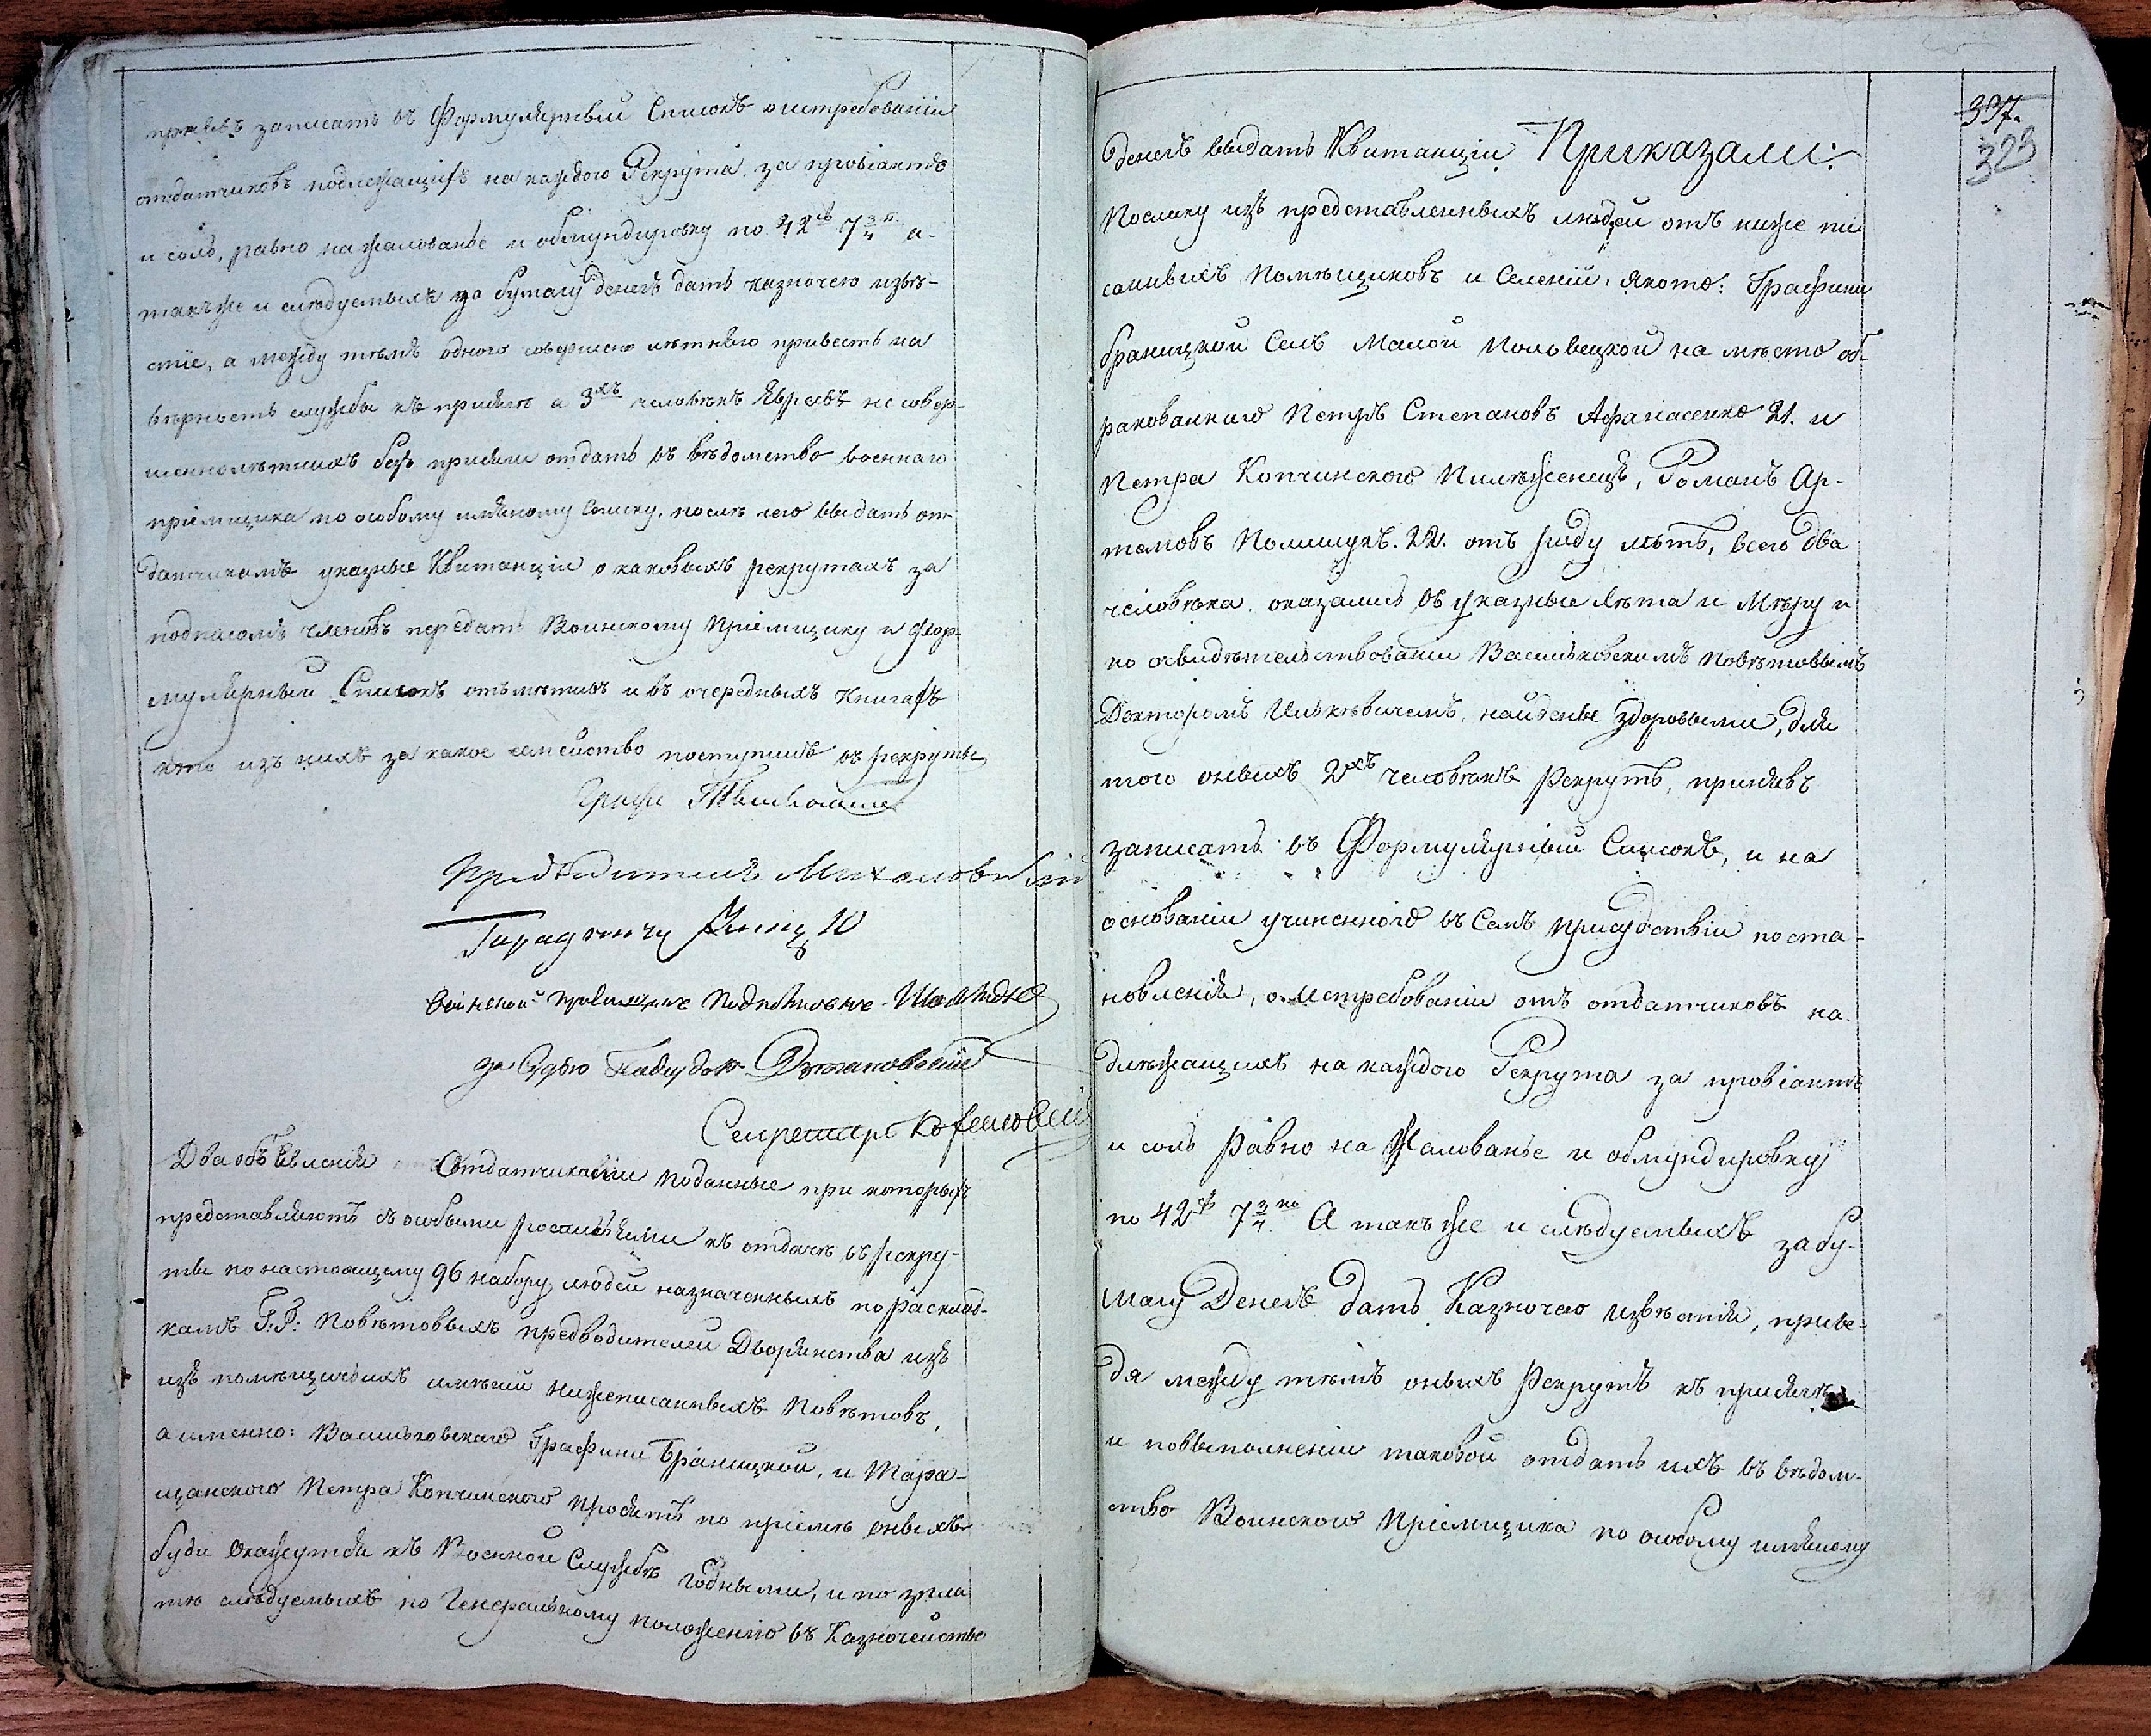 принявъ записать въ Формулярный Списокъ о истребованіи
отдатчиковъ подлежащихъ на каждого Рекрута за провіантъ
и соль, равно на жалованье и обмундировку по 42 7¾ к. а
такъже и слѣдуемыхъ за бумагу денегъ дать казначею извѣ-
стіе, а между тѣмъ одного совершенно лѣтняго привесть на
вѣрность службы къ присягѣ а 3хъ человѣкъ Евреевъ не совер-
шеннолѣтнихъ безъ присяги отдать въ вѣдомство военнаго
пріемщика по особому имяному списку, послѣ чего выдать от-
датчикамъ указные Квитанціи о каковыхъ рекрутахъ за
подписомъ членовъ передать Воинскому Пріемщику и Фор-
мулярный Списокъ отъмѣтивъ и въ очередныхъ Книгахъ
кто изъ нихъ за какое семейство поступилъ въ рекруты
Графъ
Предводитель
воинской пріемщикъ Подполковникъ
за Судью Подсудокъ
Секретарь
Два объявленія Отдатчиками поданные при которыхъ
представляютъ съ особыми росписями къ отдачѣ въ рекру-
ты по настоящему 96 набору людей назначенныхъ по расклад-
камъ Г.Г: Повѣтовыхъ предводителей Дворянства изъ
изъ помѣщичьихъ имѣній нижеписанныхъ Повѣтовъ,
а именно: Васильковскаго Графини Браницкой, и Тара-
щанского Петра Копчинского просятъ по пріемѣ оныхъ
буди окажутся къ Военной Службѣ годными, и по упла
тѣ слѣдуемыхъ по Генеральному положенію въ Казначейство
397.
323
денегъ выдать Квитанціи Приказали:
Поелику изъ представленныхъ людей отъ ниже пи
санныхъ Помѣщиковъ и Селеній. Якото: Графини
браницкой Селъ Малой Половецкой на мѣсто об-
ракованнаго Петръ Степановъ Афанасенко 21. и
Петра Копчинского Романъ Ар-
темовъ Полищукъ. 22. отъ роду лѣтъ, всего два
человѣка. оказались въ указные лѣта и Мѣру и
по освидѣтельствованіи Васильковскимъ Повѣтовымъ
Докторомъ найдены здоровыми, для
того оныхъ 2хъ человѣкъ Рекрутъ, принявъ
записать въ Формулярный Списокъ, и на
основаніи учиненного въ Семъ присудствіи поста-
новленія, о истребованіи отъ отдатчиковъ на-
длежащихъ на каждого Рекрута за провіантъ
и соль Равно на Жалованье и обмундировку
по 42 7¾ ко А такъ же и слѣдуемыхъ за бу-
магу Денегъ дать Казначею извѣстія, приве-
дя между тѣмъ оныхъ Рекрутъ къ присягѣ
и повыполненіи таковой отдать ихъ въ вѣдом-
ство Воинского Пріемщика по особому имяному